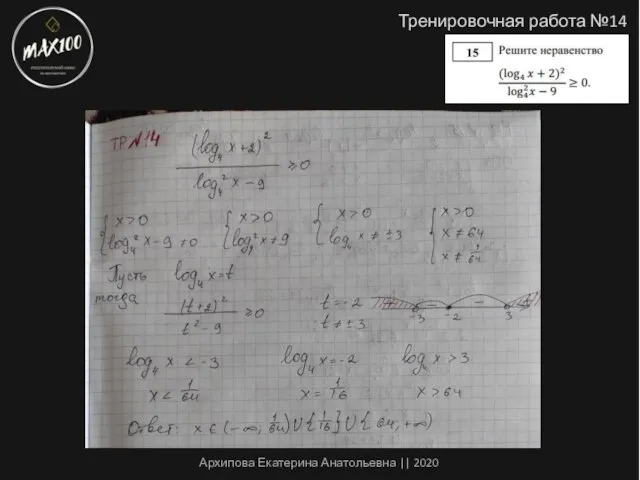 Тренировочная работа №14
MAX100
15 Решите неравенство
(log₄ x + 2)²
log₄² x − 9 ≥ 0.
ТР №14
(log₄ x + 2)²
log₄² x − 9 ≥ 0
{ x > 0 { x > 0 { x > 0 { x > 0
log₄² x − 9 ≠ 0 log₄² x ≠ 9 log₄ x ≠ ± 3 x ≠ 64
x ≠ 1/64
Пусть log₄ x = t
тогда
(t+2)²
t² − 9 ≥ 0
t = −2
t ≠ ± 3
+ − − +
−3 −2 3
log₄ x < −3 log₄ x = −2 log₄ x > 3
x < 1/64 x = 1/16 x > 64
Ответ: x ∈ (−∞; 1/64) U {1/16} U { 64; +∞)
Архипова Екатерина Анатольевна || 2020